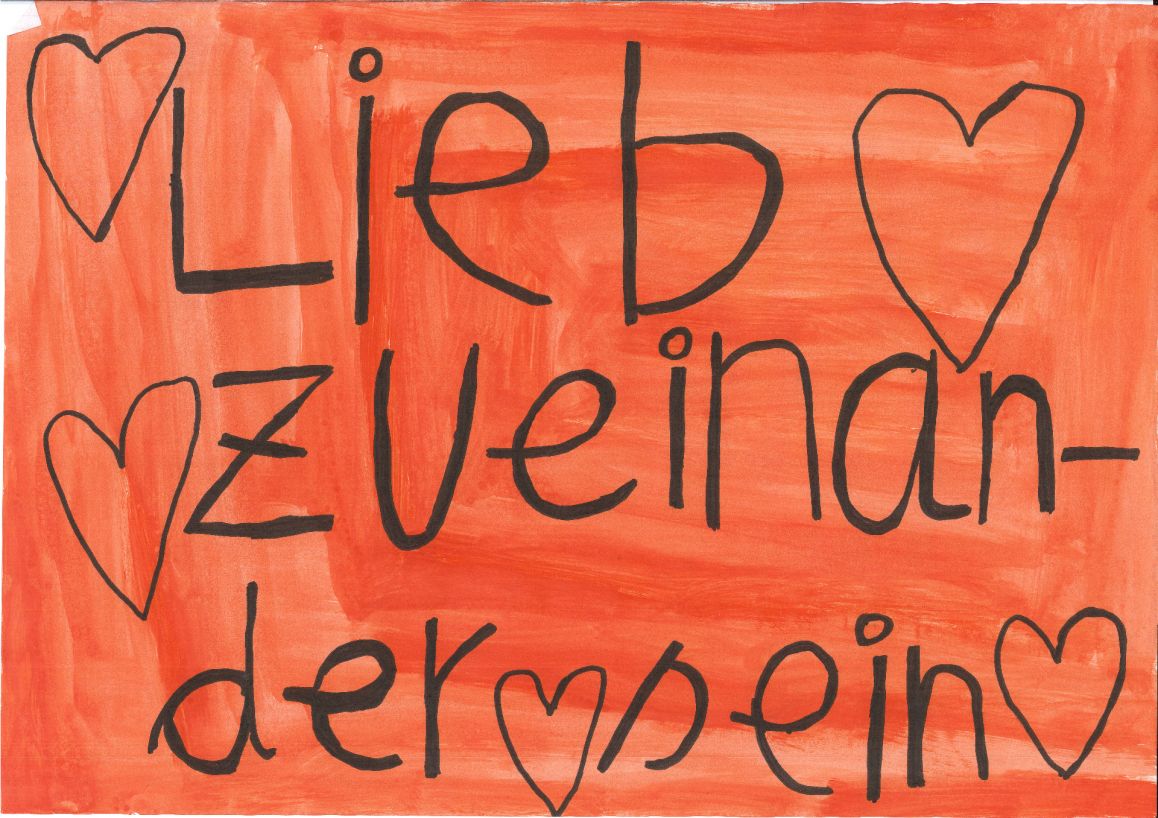 Lieb
zueinan-
der sein